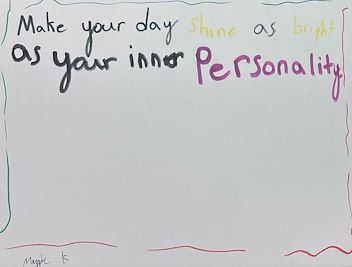 Make your day shine as bright
as your inner Personality.
Maggie K